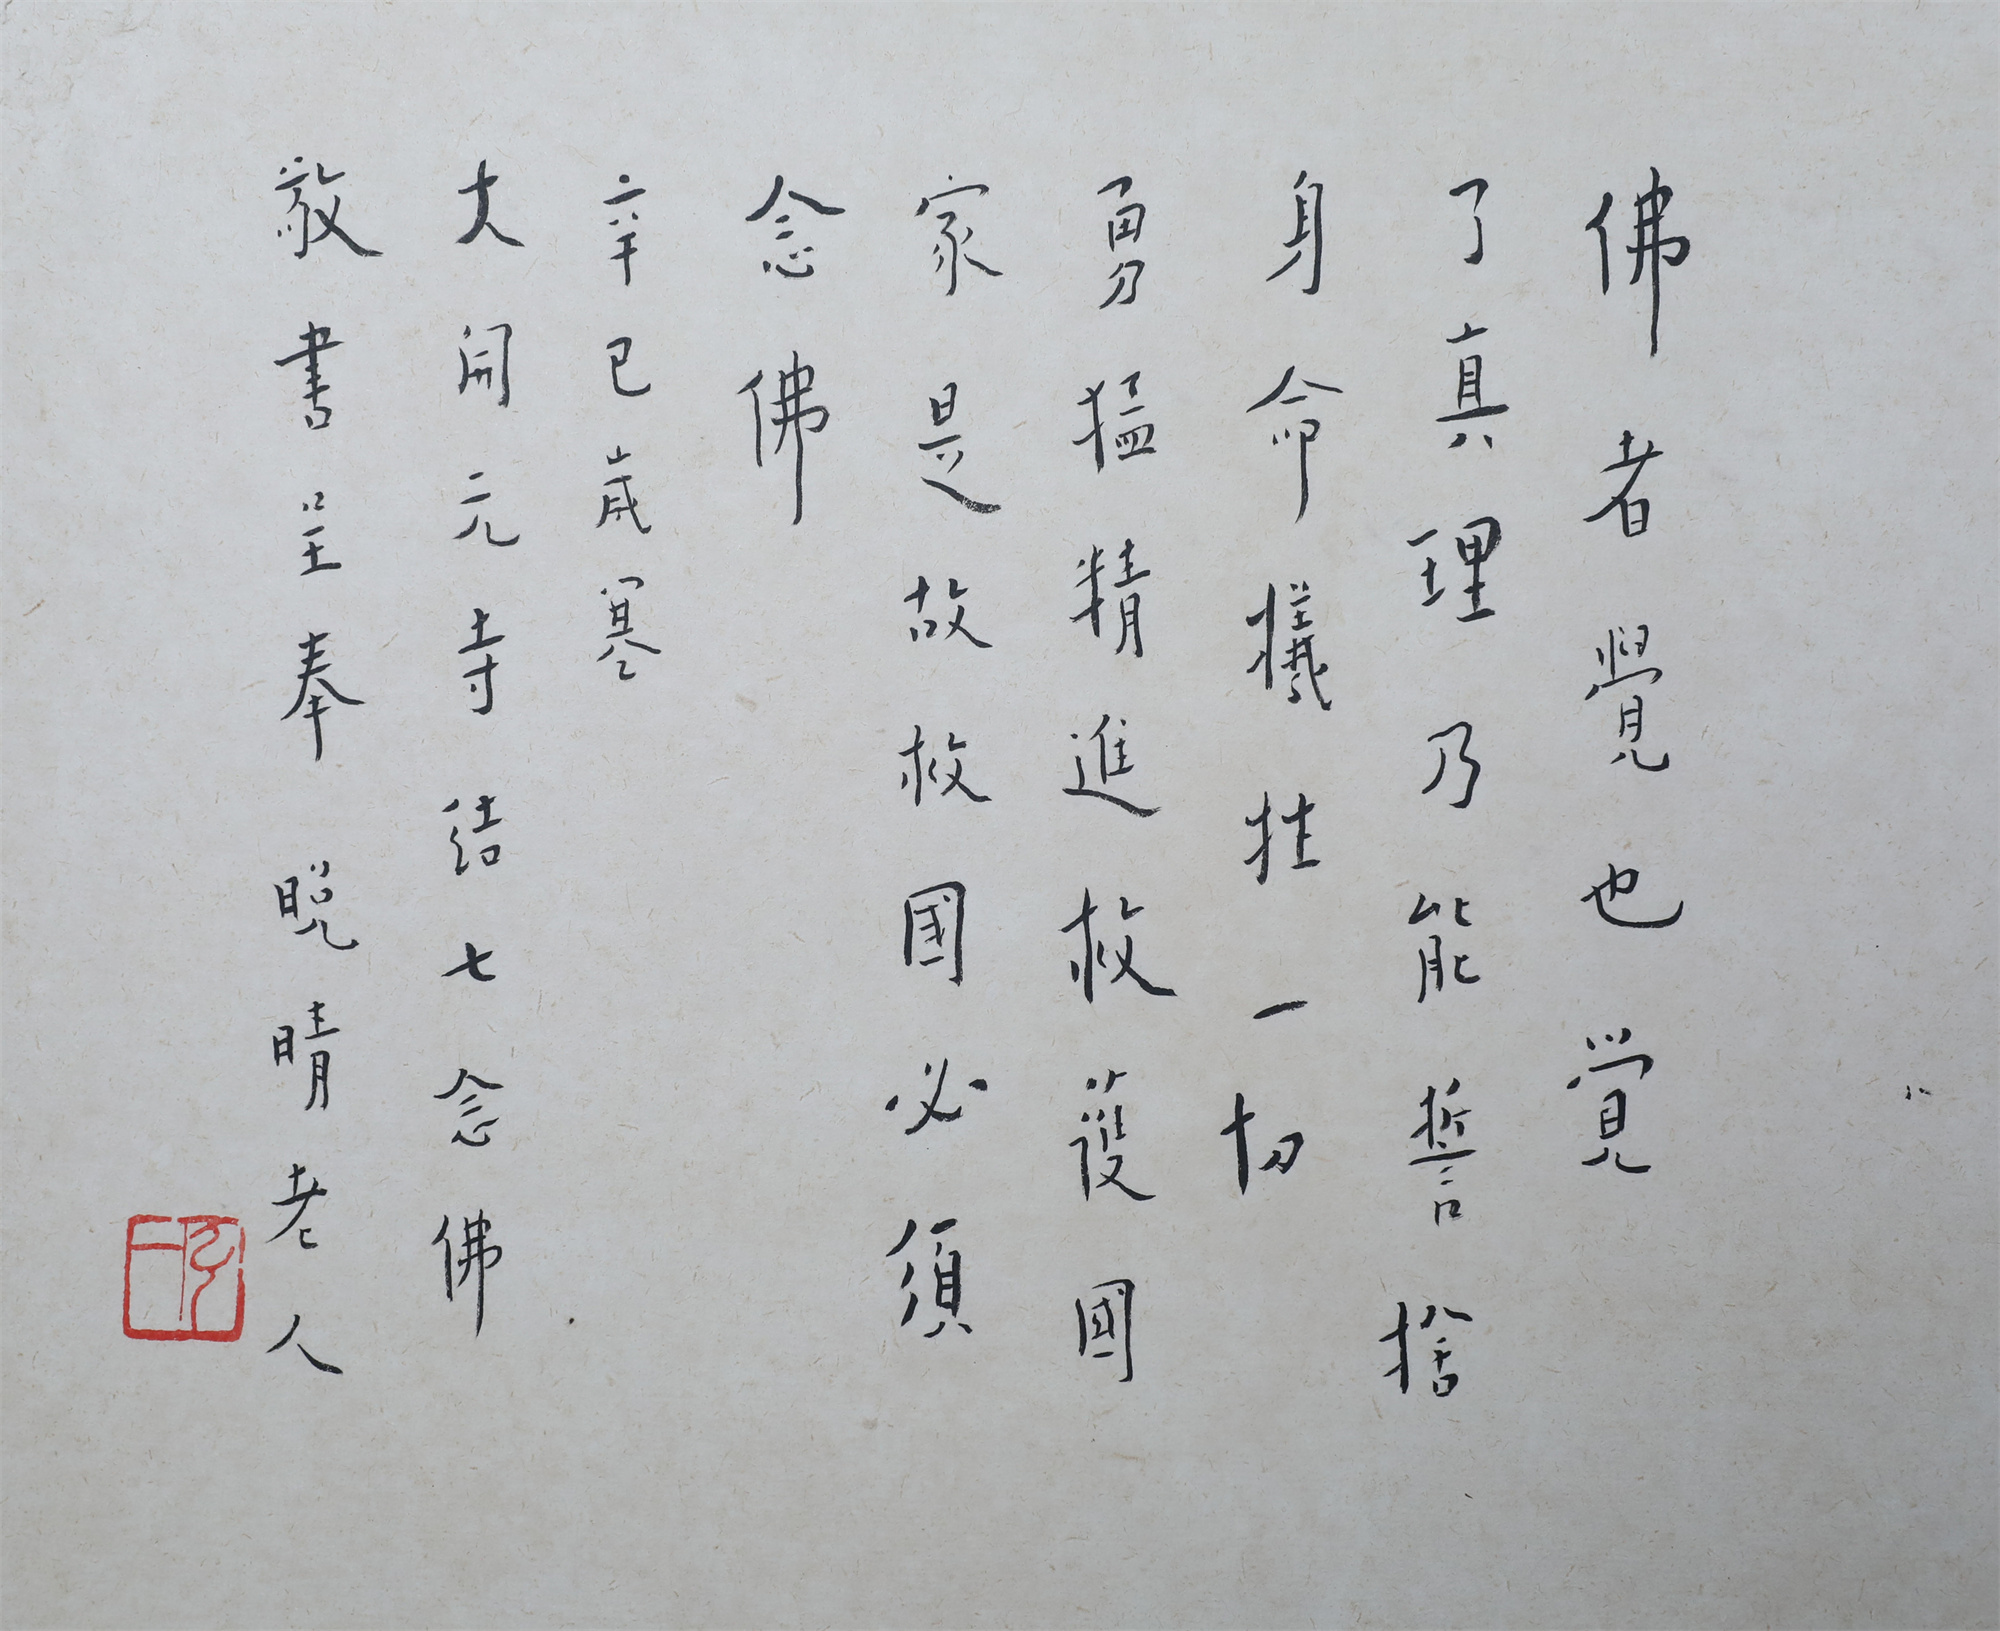 佛者覺也覺
了真理乃能誓捨
身命犧牲一切
勇猛精進救護國
家是故救國必須
念佛
辛巳歲寒
大開元寺結七念佛
敬書呈奉 晚晴老人
弘一